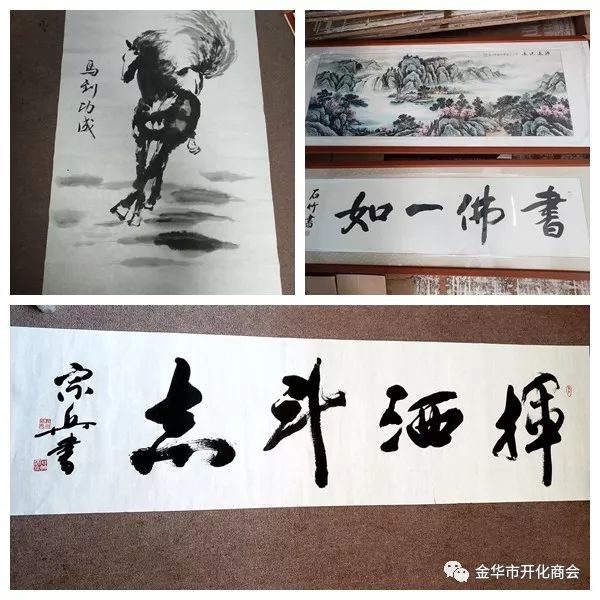 馬到功成
書佛一如
石竹書
揮洒斗志
金华市开化商会